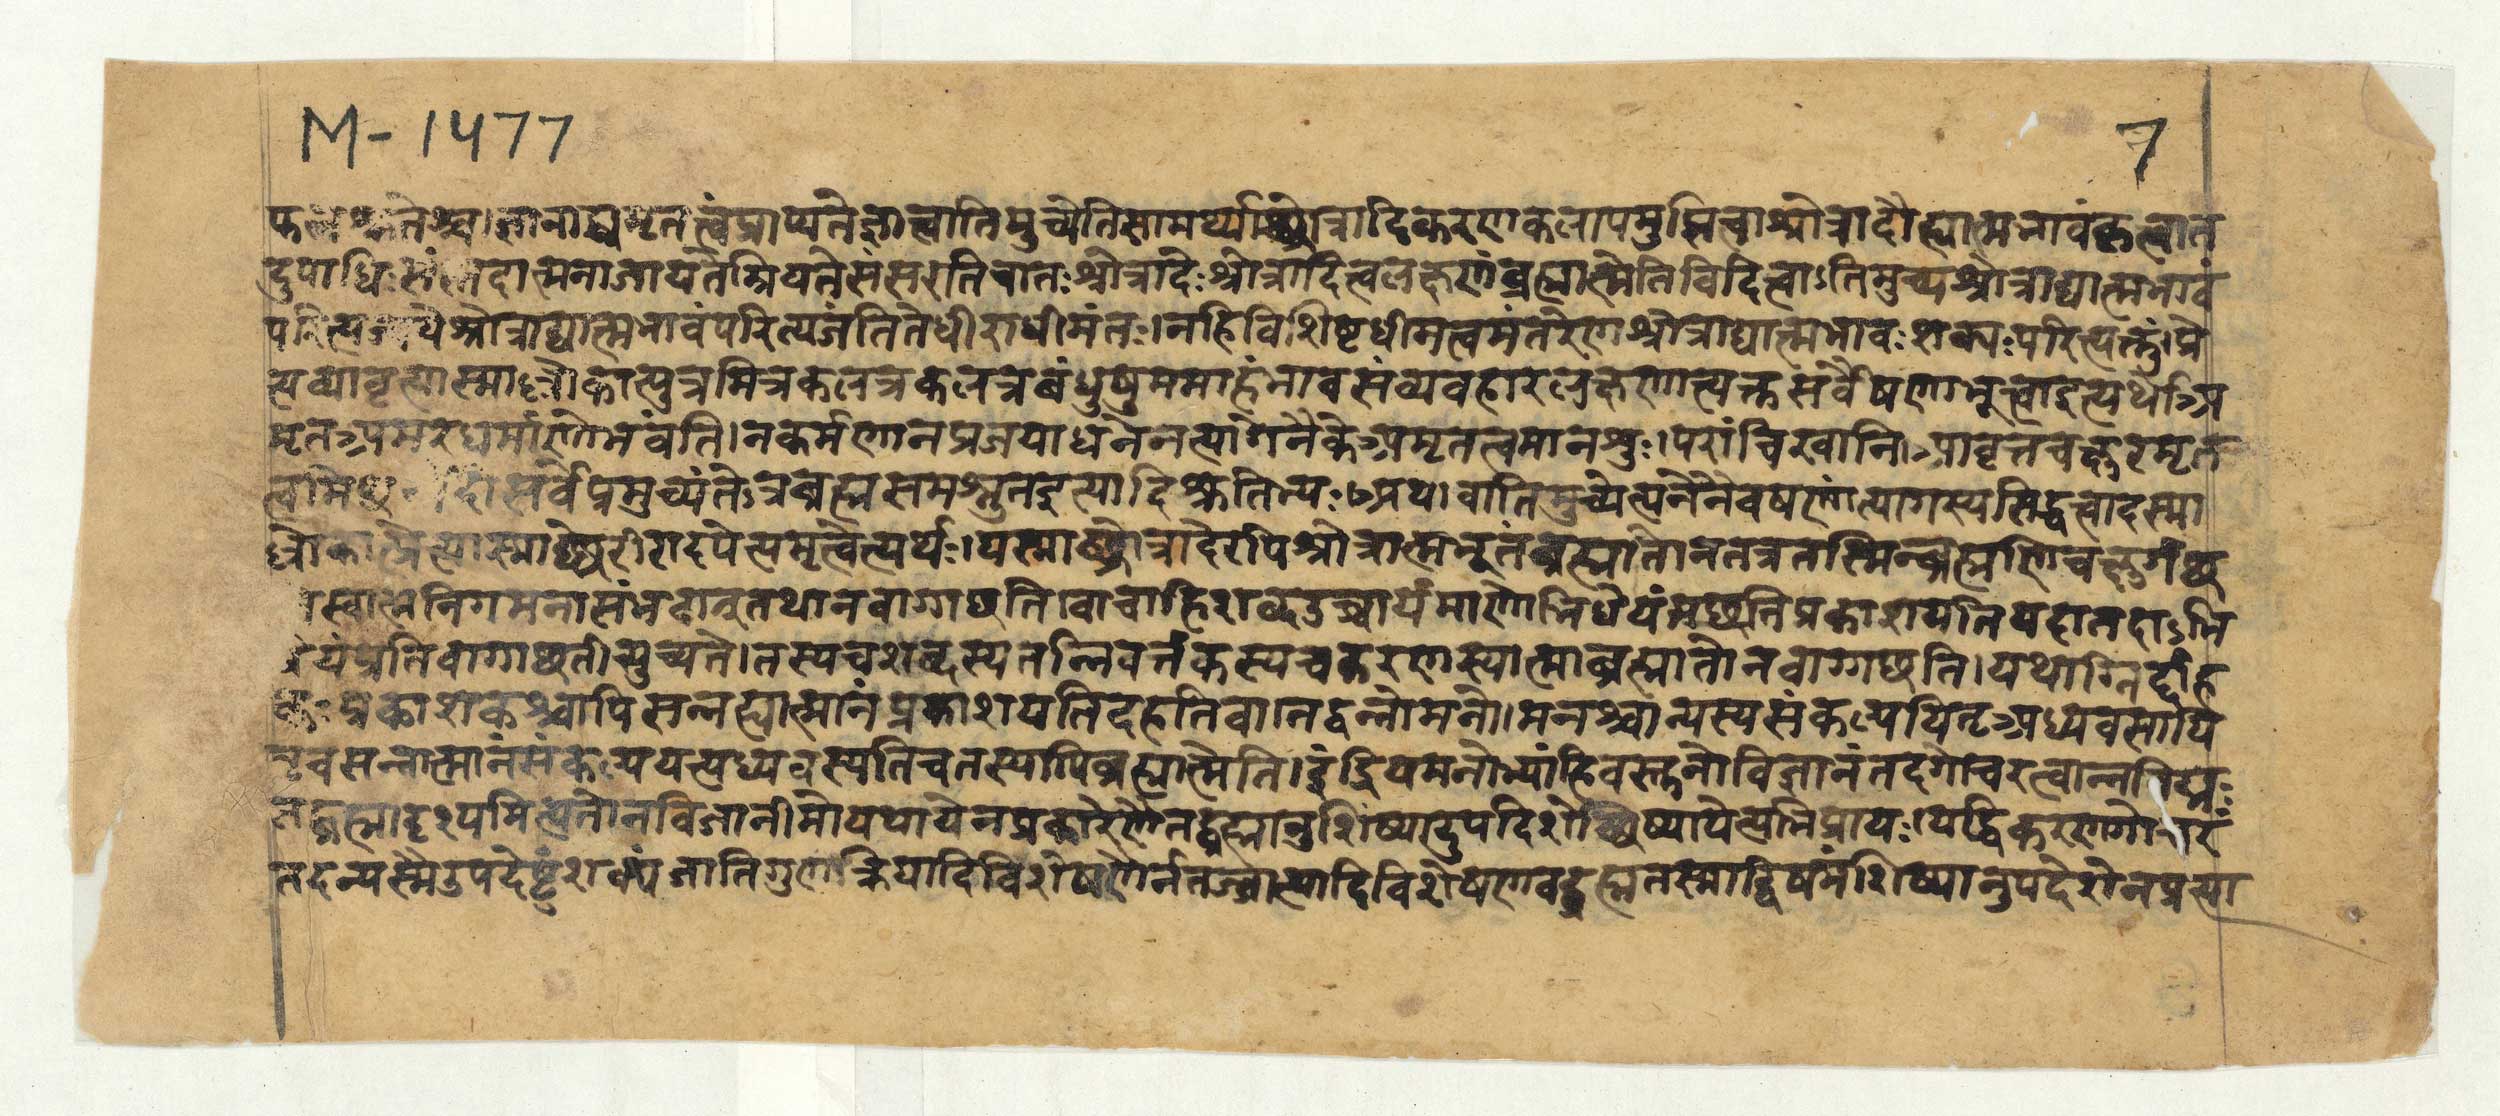 M-1477
7
फलश्रुतेश्च।ज्ञानाद्ध्यमृतत्वंप्राप्यतेज्ञात्वातिमुच्येतिसामर्थ्याच्छ्रोत्रादिकरणकलापमुज्झित्वाश्रोत्रादौह्यात्मभावंकृत्वात
दुपाधिःसंस्तदात्मनाजायतेम्रियतेसंसरतिचातःश्रोत्रादेःश्रोत्रादित्वलक्षणंब्रह्मात्मेतिविदित्वाऽतिमुच्यश्रोत्राद्यात्मभावं
परित्यज्ययेश्रोत्राद्यात्मभावंपरित्यजंतितेधीराधीमंतः।नहिविशिष्टधीमत्वमंतरेणश्रोत्राद्यात्मभावःशक्यःपरित्यक्तुं।प्रे
त्यव्यावृत्यास्माल्लोकात्पुत्रमित्रकलत्रकलत्रबंधुषुममाहंभावसंव्यवहारलक्षणात्यक्तसर्वैषणाभूत्वाइत्यर्थःअ
मृतअमरधर्माणोभवंति।नकर्मणानप्रजयाधनेनत्यागेनैकेअमृतत्वमानशुः।परांचिखानि।आवृत्तचक्षुरमृत
त्वमिछ ॰ ।दासर्वेप्रमुच्यंतेऽत्रब्रह्मसमश्नुतइत्यादिश्रुतिभ्यः॥अथ।वातिमुच्येत्यनेनैवैषणात्यागस्यसिद्धत्वादस्मा
ल्लोकात्प्रेत्यास्माच्छरीरादपेत्यमृत्वेत्यर्थः।यस्माच्छ्रोत्रादेरपिश्रोत्रात्मभूतंब्रह्मातोनतत्रतस्मिन्ब्रह्मणिचक्षुर्गछ
तिस्वात्मनिगमनासंभवात्तूतथानवाग्गछति।वाचाहिशब्दउच्चार्यमाणोभिधेयंगछतिप्रकाशयतियदातदाऽभि
धेयंप्रतिवाग्गछतीत्युच्यते।तस्यचशब्दस्यतन्निवर्तकस्यचकरणस्यात्माब्रह्मातोनवाग्गछति।यथाग्निर्दाह
कःप्रकाशकश्चापिसन्नह्यात्मानंप्रकाशयतिदहतिवा।तद्वन्नोमनो।मनश्चान्यस्यसंकल्पयितृअध्यवसायि
तृचसन्नात्मानंसंकल्पयत्यध्यवस्यतिचतस्यापिब्रह्मात्मेति।इंद्रियमनोभ्यांहिवस्तुनोविज्ञानंतदगोचरत्वान्नविद्मः
तद्ब्रह्मादृश्यमित्यतोनविजानीमोयथायेनप्रकारेणैतद्ब्रह्मानुशिष्यादुपदिशेच्छिष्यायेत्यभिप्रायः।यद्धिकरणगोचरं
तदन्यस्मैउपदेष्टुंशक्यंजातिगुणक्रियादिविशेषणैर्नतज्जात्यादिविशेषणवद्ब्रह्मतस्माद्विषमंशिष्यानुपदेशेनप्रत्या